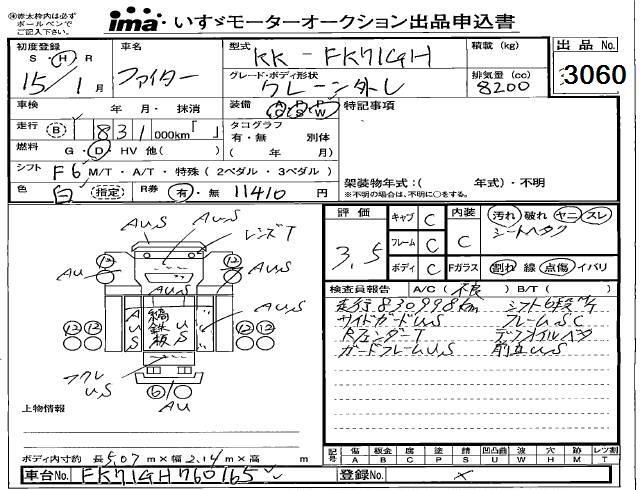 ※赤太枠内は必ずボールペンでご記入下さい。
ima・いすゞモーターオークション出品申込書
初度登録 S・H・R 15/1月
車名 ファイター
型式 KK-FK71GH
積載 (kg)
出品No. 3060
グレード・ボディ形状 クレーン外し
排気量 (cc) 8200
車検 年・月・抹消
装備 A/C P/S P/W
特記事項
走行 B 831,000km「 」
タコグラフ 有・無 別体 ( 年 月)
燃料 G・D・HV 他( )
シフト F6 M/T・A/T・特殊(2ペダル・3ペダル)
架装物年式:( 年式)・不明
※不明の場合は、不明に○をする。
色 白 指定 R券 有・無 11410 円
評価 3.5
キャブ C
フレーム C
ボディ C
内装 C
Fガラス
汚れ 破れ ヤニ スレ
シートヘタク
割れ 線 点傷 イバリ
検査員報告 A/C(不良) B/T( )
走行830998km シフト6段M/T
サイドガードU,S フレームS,C
RフェンダーT デフオイルヘタ
ガードフレームU,S 前立U,S
AU,S
AU,S
レンズT
AU
AU
AU,S
縞鉄板
U S
12 12
12 12 12 12
フクレ U,S
6
AU
上物情報
ボディ内寸約 長5.07m×幅2.14m×高 m
記号 傷A 板金B 腐C 塗P 錆S 凹凸曲U 波W 穴H 跡M レツ割T
車台No. FK71GH760165
登録No. ×